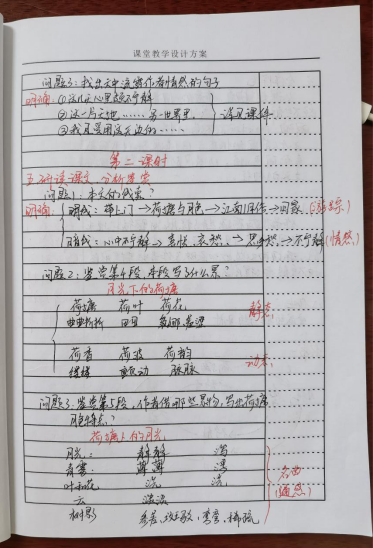 课堂教学设计方案
问题3:找出文中流露作者情感的句子
明确:①这几天心里颇不宁静
②这一片天地……另一世界里
③我且受用这无边的…… 读习课件
第二课时
五.研读课文 分析赏索
问题1:本文的线索?
明确: 明线:带上门→荷塘月色→江南旧俗→回家(游踪)
暗线:心中不宁静→喜悦、哀愁→思乡愁→不宁静(情感)
问题2:鉴赏第4段,本段写了什么景?
月光下的荷塘
荷塘 荷叶 荷花 静态
曲曲折折 田田 袅娜、羞涩
荷香 荷波 荷韵 动态
缕缕 颤动 脉脉
问题3:鉴赏第5段,作者借哪些景物,写出荷塘
月色特点?
荷塘上的月光
月光: 静静 泻
青雾: 薄薄 浮
叶和花 洗 名曲
云 淡淡 (通感)
树影 参差、斑驳、弯弯、稀疏